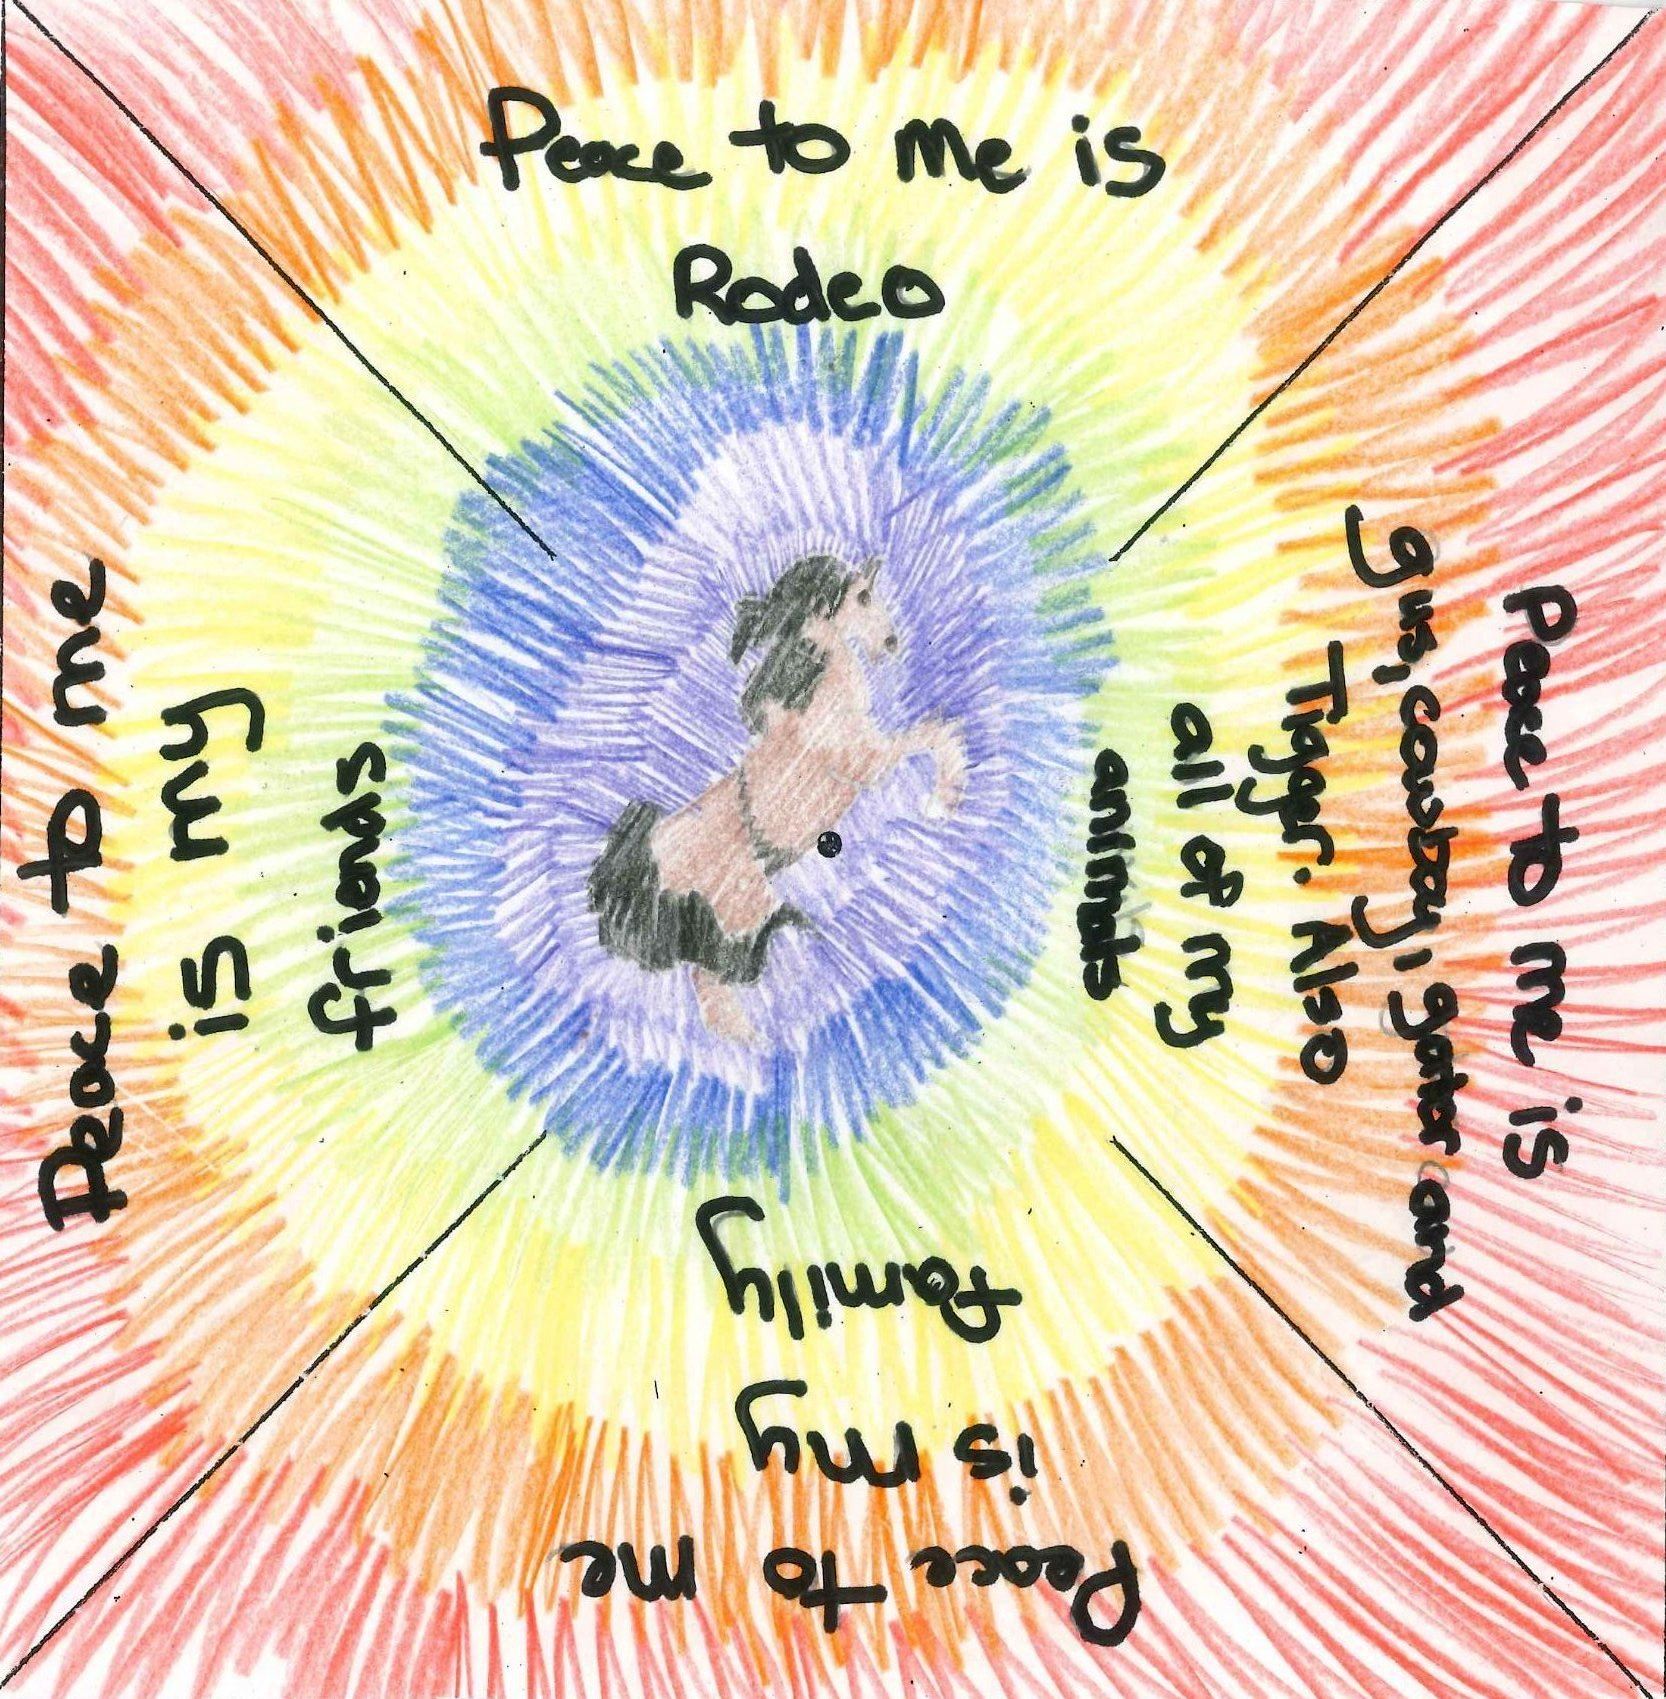 Peace to me is
Rodeo
Peace to me is
gus, cowboy, gator and
Tiger. Also
all of my
animals
Peace to me
is my
family
Peace to me
is my
friends